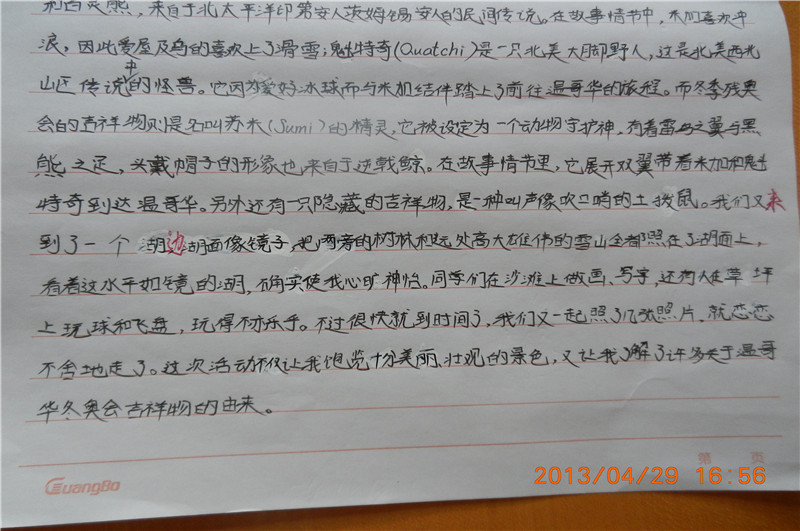 利西灵熊，来自于北太平洋印第安人茨姆锡安人的民间传说。在故事情节中，米加喜欢冲
浪，因此爱屋及鸟的喜欢上了滑雪；魁特奇(Quatchi)是一只北美大脚野人，这是北美西北
山区传说中的怪兽。它因为爱好冰球而与米加结伴踏上了前往温哥华的旅程。而冬季残奥
会的吉祥物则是名叫苏米(Sumi)的精灵，它被设定为一个动物守护神，有着雷鸟之翼与黑
熊之足，头戴帽子的形象也来自于逆戟鲸。在故事情节里，它展开双翼带着米加和魁
特奇到达温哥华。另外还有一只隐藏的吉祥物，是一种叫声像吹口哨的土拨鼠。我们又来
到了一个湖边湖面像镜子，把两旁的树林和远处高大雄伟的雪山全都照在了湖面上，
看着这水平如镜的湖，确实使我心旷神怡。同学们在沙滩上做画、写字，还有人在草坪
上玩球和飞盘，玩得不亦乐乎。不过很快就到时间了，我们又一起照了几张照片，就恋恋
不舍地走了。这次活动不仅让我饱览十分美丽、壮观的景色，又让我了解了许多关于温哥
华冬奥会吉祥物的由来。
GuangBo
第 页
2013/04/29 16:56